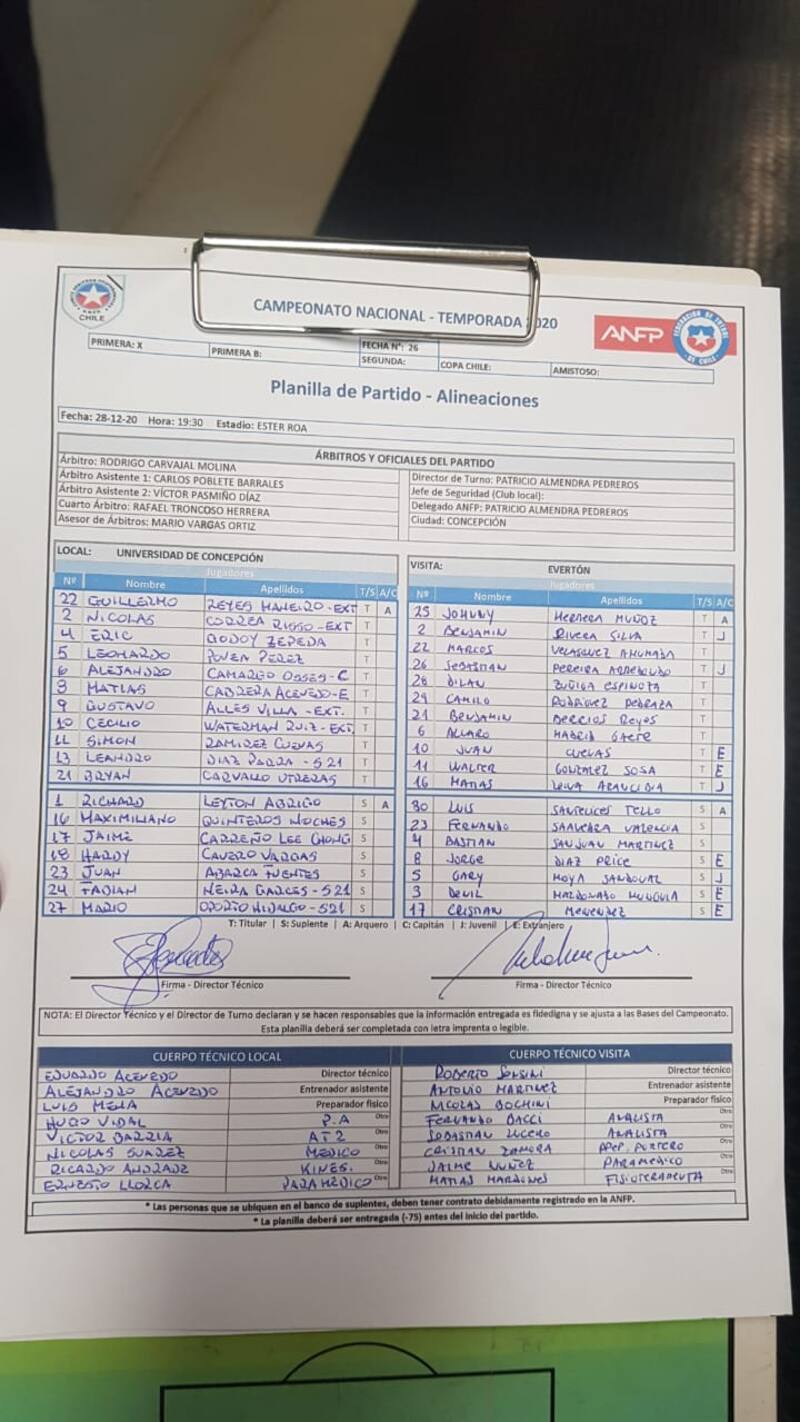 CHILE
CAMPEONATO NACIONAL - TEMPORADA 2020
ANFP
FEDERACIÓN DE FUTBOL DE CHILE
PRIMERA: X PRIMERA B: FECHA N°: 26
SEGUNDA: COPA CHILE: AMISTOSO:
Planilla de Partido - Alineaciones
Fecha: 28-12-20 Hora: 19:30 Estadio: ESTER ROA
ÁRBITROS Y OFICIALES DEL PARTIDO
Árbitro: RODRIGO CARVAJAL MOLINA
Árbitro Asistente 1: CARLOS POBLETE BARRALES
Árbitro Asistente 2: VÍCTOR PASMIÑO DÍAZ
Cuarto Árbitro: RAFAEL TRONCOSO HERRERA
Asesor de Árbitros: MARIO VARGAS ORTIZ
Director de Turno: PATRICIO ALMENDRA PEDREROS
Jefe de Seguridad (Club local):
Delegado ANFP: PATRICIO ALMENDRA PEDREROS
Ciudad: CONCEPCIÓN
LOCAL: UNIVERSIDAD DE CONCEPCIÓN
Jugadores
Nº Nombre Apellidos T/S A/C
22 GUILLERMO REYES MANEIRO-EXT T A
2 NICOLAS CORREA RISSO-EXT T
4 ERIC GODOY ZEPEDA T
5 LEONARDO POVEA PEREZ T
6 ALEJANDRO CAMARGO OSSES-C T
8 MATIAS CABRERA ACEVEDO-E T
9 GUSTAVO ALLES VILLA -EXT. T
10 CECILIO WATERMAN RUIZ-EXT. T
11 SIMON RAMIREZ CUEVAS T
13 LEANDRO DIAZ PARRA -S21 T
21 BRYAN CARVALLO UTRERAS T
1 RICHARD LEYTON ABRIGO S A
16 MAXIMILIANO QUINTEROS NOCHES S
17 JAIME CARREÑO LEE CHONG S
18 HARDY CAVERO VARGAS S
23 JUAN ABARCA FUENTES S
24 FABIAN NEIRA GARCES-S21 S
27 MARIO OPORTO HIDALGO-S21 S
VISITA: EVERTÓN
Jugadores
Nº Nombre Apellidos T/S A/C
25 JOHNNY HERRERA MUÑOZ T A
2 BENJAMIN RIVERA SILVA T J
22 MARCOS VELASQUEZ AHUMADA T
26 SEBASTIAN PEREIRA ARREDONDO T J
28 DILAN ZUÑIGA ESPINOZA T
29 CAMILO RODRIGUEZ PEDRAZA T
21 BENJAMIN BERRIOS REYES T
6 ALVARO MADRID GAETE T
10 JUAN CUEVAS T E
11 WALTER GONZALEZ SOSA T E
16 MATIAS LEIVA ARANCIBIA T J
30 LUIS SANTELICES TELLO S A
23 FERNANDO SAAVEDRA VALENCIA S
4 BASTIAN SANJUAN MARTINEZ S
8 JORGE DIAZ PRICE S E
5 GARY MOYA SANDOVAL S J
3 DENIL MALDONADO MUNGUIA S E
17 CRISTIAN MENENDEZ S E
T: Titular | S: Suplente | A: Arquero | C: Capitán | J: Juvenil | E: Extranjero
Firma - Director Técnico
Firma - Director Técnico
NOTA: El Director Técnico y el Director de Turno declaran y se hacen responsables que la información entregada es fidedigna y se ajusta a las Bases del Campeonato.
Esta planilla deberá ser completada con letra imprenta o legible.
CUERPO TÉCNICO LOCAL
EDUARDO ACEVEDO Director técnico
ALEJANDRO ACEVEDO Entrenador asistente
LUIS MENA Preparador físico
HUGO VIDAL P.A Otro
VICTOR BARRIA AT2 Otro
NICOLAS SUAREZ MEDICO Otro
RICARDO ANDRADE KINES. Otro
ERNESTO LLORCA PARAMEDICO Otro
CUERPO TÉCNICO VISITA
ROBERTO SENSINI Director técnico
ANTONIO MARTINEZ Entrenador asistente
NICOLAS BOCHINI Preparador físico
FERNANDO BACCI ANALISTA Otro
SEBASTIAN LUCERO ANALISTA Otro
CRISTIAN ZAMORA PREP. PORTERO Otro
JAIME NUÑEZ PARAMEDICO Otro
MATIAS MARDINES FISIOTERAPEUTA Otro
* Las personas que se ubiquen en el banco de suplentes, deben tener contrato debidamente registrado en la ANFP.
* La planilla deberá ser entregada (-75) antes del inicio del partido.